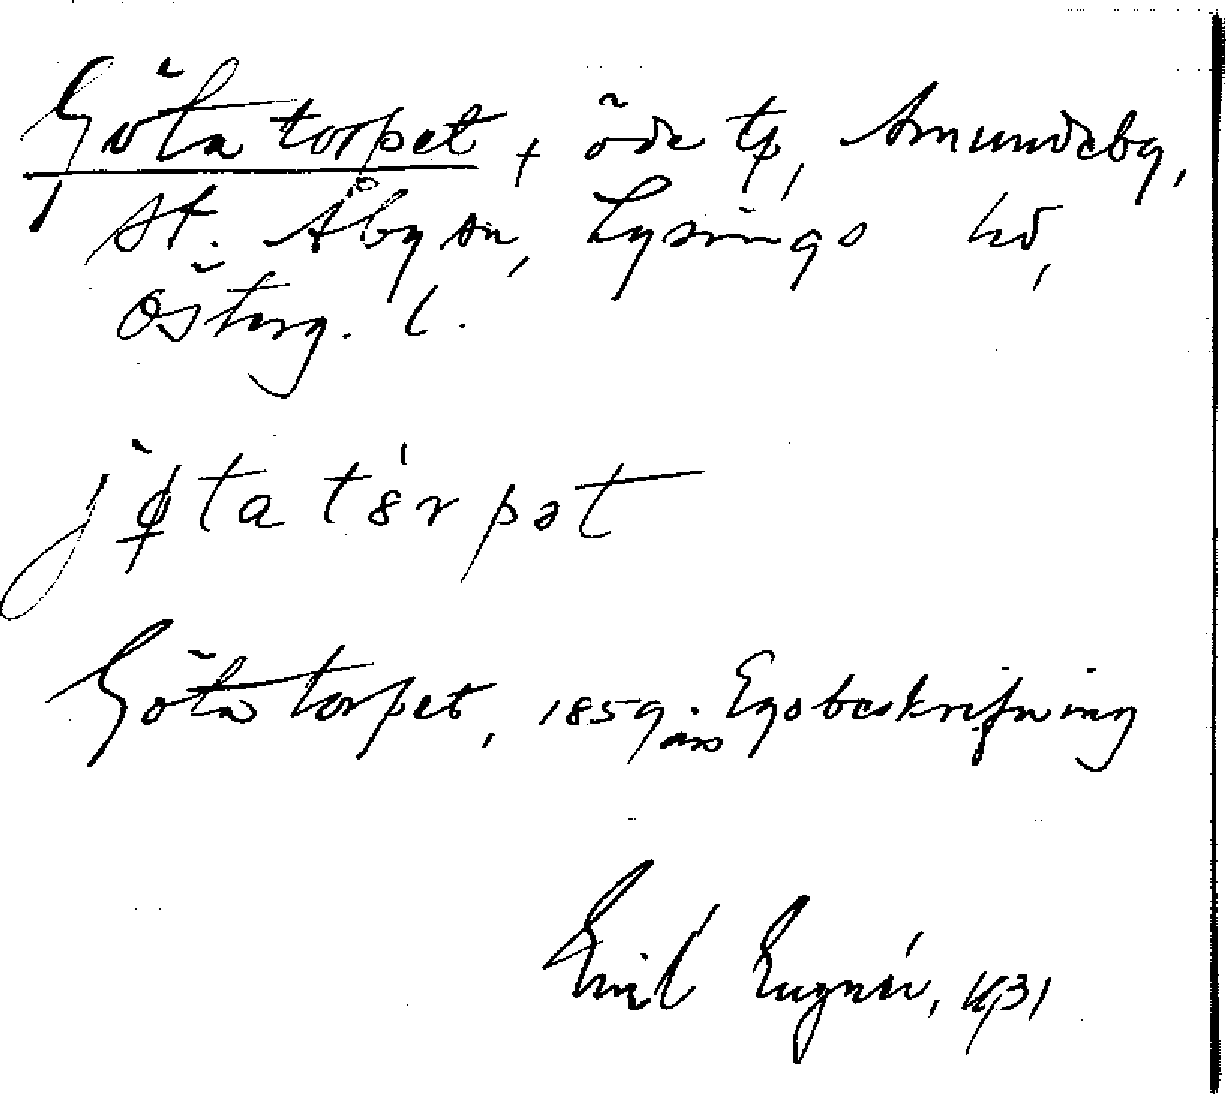 Götatorpet, + öde tp, Amundeby,
St. Åby sn, Lysings hd,
Österg. l.
jø̀tatórpət
Götatorpet, 1859 års Egobeskrifning
Emil 1931